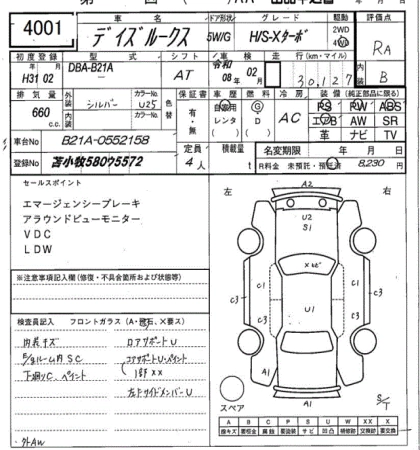 4001
車名
ドア形状
グレード
駆動
評価点
デイズルークス
5W/G
H/S-Xターボ
2WD
4WD
RA
初度登録
型式
シフト
車検
走行(km・マイル)
H31 02
DBA-B21A
AT
令和
08年
02月
30,127
内装
B
排気量
外装
カラーNo.
色替
保証書
車歴
燃料
冷房
装備(純正部品に限る)
660
c.c.
シルバー
U25
有・無
自家用
レンタ
G
D
AC
PS PW ABS
エアB AW SR
革 ナビ TV
内装
カラーNo.
車台No
B21A-0552158
定員
積載量
名変期限
年 月 日
登録No
苫小牧580う5572
4人
t
R料金 未預託・預託済
8,230円
セールスポイント
エマージェンシーブレーキ
アラウンドビューモニター
VDC
LDW
※注意事項記入欄(修復・不具合箇所および状態等)
検査員記入
フロントガラス(A・飛石、×要ス)
内装キズ
ロアサポートU
コアサポートU・ペイント
1部××
下廻りC、ペイント
左ドサイドメンバーU
外AW
左
右
A2
U2
S1
C1
C1
C3
C3
C3
C3
U1
A1
A1
A1
スペア
S/T
A B C P S U W X XX